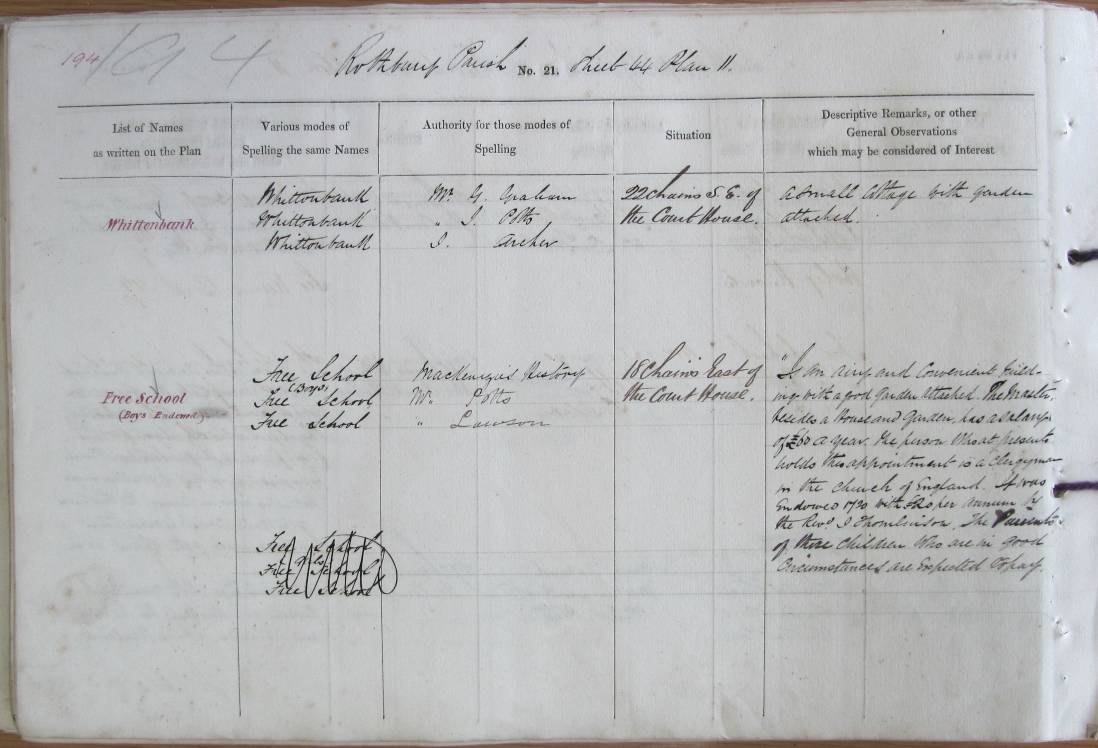 194
194
Rothbury Parish No. 21. Sheet 44 Plan 11.
List of Names
as written on the Plan
Various modes of
Spelling the same Names
Authority for those modes of
Spelling
Situation
Descriptive Remarks, or other
General Observations
which may be considered of Interest
Whittonbank
Whittonbank
Whittonbank
Whittonbank
Mr. G. Graham
" J. Potts
J. Archer
22 chains S.E. of
the Court House.
a small Cottage with garden
attached.
Free School
(Boys Endowed)
Free School
(Boys)
Free School
Free School
MacKenzie's History
Mr. Potts
" Lawson
18 Chains East of
the Court House.
"Is an airy and Convenient build-
ing with a good Garden attached. The Master,
besides a House and Garden, has a salary
of £60 a year. the person who at present
holds this appointment is a Clergyman
in the Church of England. It was
Endowed 1720 with per annum by
the Revd. J Thomlinson. The Parents
of those Children Who are in good
Circumstances are Expected to pay.
Free School
Free School
Free School